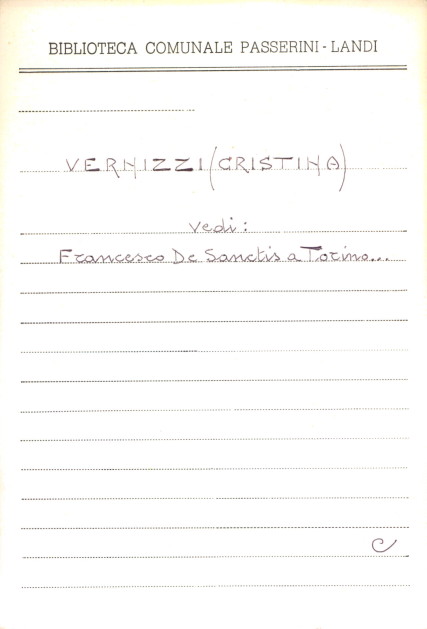 BIBLIOTECA COMUNALE PASSERINI - LANDI
VERNIZZI (CRISTINA)
vedi:
Francesco De Sanctis a Torino...
C